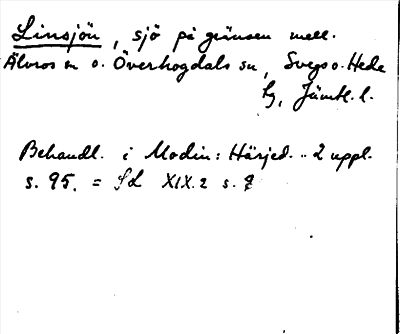 Linsjön, sjö på gränsen mell.
Älvros sn o. Överhogdals sn, Svegs o. Hede
tg, Jämtl. l.
Behandl. i Modin: Härjed. .. 2 uppl.
s. 95. = SL XIX.2 s.